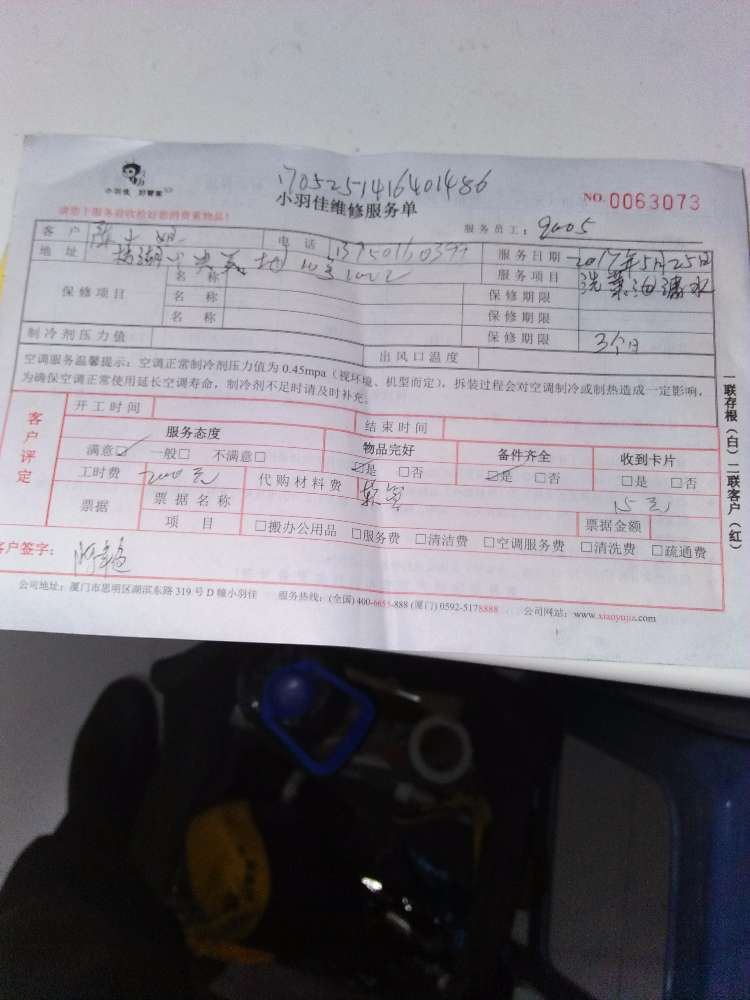 小羽佳 好管家
1705251416401486
小羽佳维修服务单
NO.0063073
请您于服务前收检好您的贵重物品！
服务员工：9005
客户 陈小姐 电话 服务日期 2017年5月25日
地址 服务项目 洗菜池漏水
保修项目 名称 保修期限
名称 保修期限
名称 保修期限 3个月
制冷剂压力值 出风口温度
空调服务温馨提示：空调正常制冷剂压力值为 0.45mpa（视环境、机型而定），拆装过程会对空调制冷或制热造成一定影响，
为确保空调正常使用延长空调寿命，制冷剂不足时请及时补充。
客户评定
开工时间 结束时间
服务态度 物品完好 备件齐全 收到卡片
满意☑ 一般□ 不满意□ ☑是 □否 ☑是 □否 □是 □否
工时费 代购材料费 15元
票据 票据名称 票据金额
项目 □搬办公用品 □服务费 □清洁费 □空调服务费 □清洗费 □疏通费
客户签字：
公司地址：厦门市思明区湖滨东路 319 号 D 幢小羽佳 服务热线：(全国) 400-6655-888 (厦门) 0592-5178888 公司网站：www.xiaoyujia.com
一联存根（白）二联客户（红）